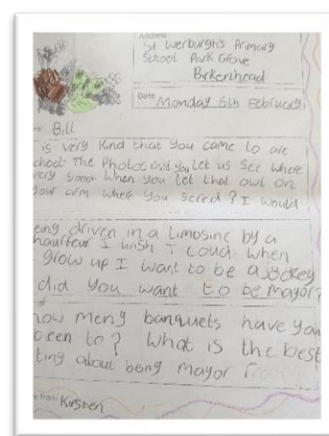 Address
St Werburgh's Primary
School Park Grove
Birkenhead
Date Monday 6th February
Bill
is very kind that you came to are
chool. The Photos that you let us see where
very good. When you let that owl on
your arm where you scred? I would
eing driven in a limosine by a
haurfeur I wish I coud. When
grow up I want to be a jockey
did you want to be mayor?
how meny banquets have you
been to? What is the best
ting about being mayor
from: Kirsten